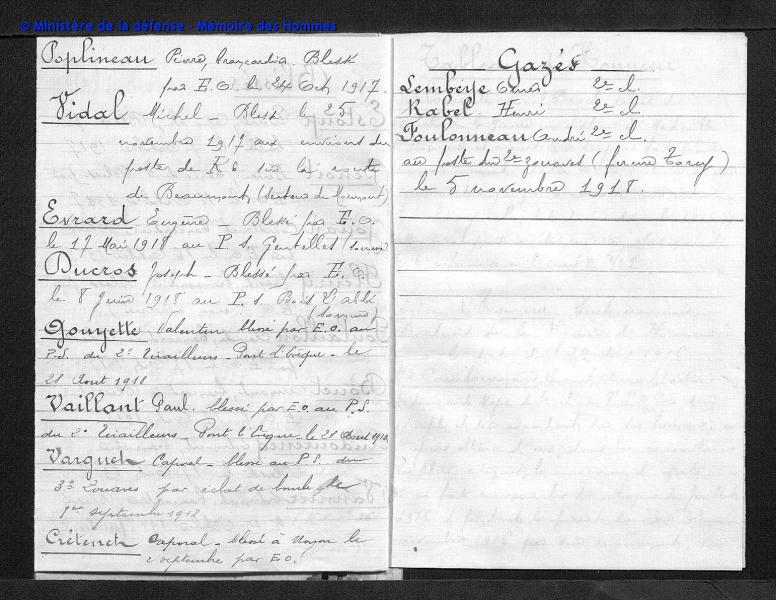 © Ministère de la défense - Mémoire des Hommes
Poplineau Pierre, brancardier. Blessé
par E.O. le 24 Oct. 1917.
Vidal Michel - Blessé le 25
novembre 1917 aux environs du
poste de R6 sur la route
de Beaumont, (secteur de
Evrard Eugène - Blessé par E.O.
le 17 Mai 1918 au P.S. Gentelles (Somme)
Ducros Joseph - Blessé par E.O.
le 8 Juin 1918 au P.S Bois l'abbé
(Somme)
Gouyette Valentin blessé par E.O. au
P.S. du 2e Tirailleurs - Pont l'Evêque - le
28 Aout 1918
Vaillant Paul. blessé par E.O. au P.S.
du 2e Tirailleurs - Pont l'Evêque - le 28 Aout 1918
Varguet Caporal - blessé au P.S. du
3e Zouaves par éclat de bombe le
1er septembre 1918
Crétenet Caporal - blessé à Noyon le
2 septembre par E.O.
Gazés
Lembeye 2e cl.
Rabel Henri 2e cl.
Foulonneau André 2e cl.
au poste du 2e zouaves (ferme Torcy)
le 5 novembre 1918.